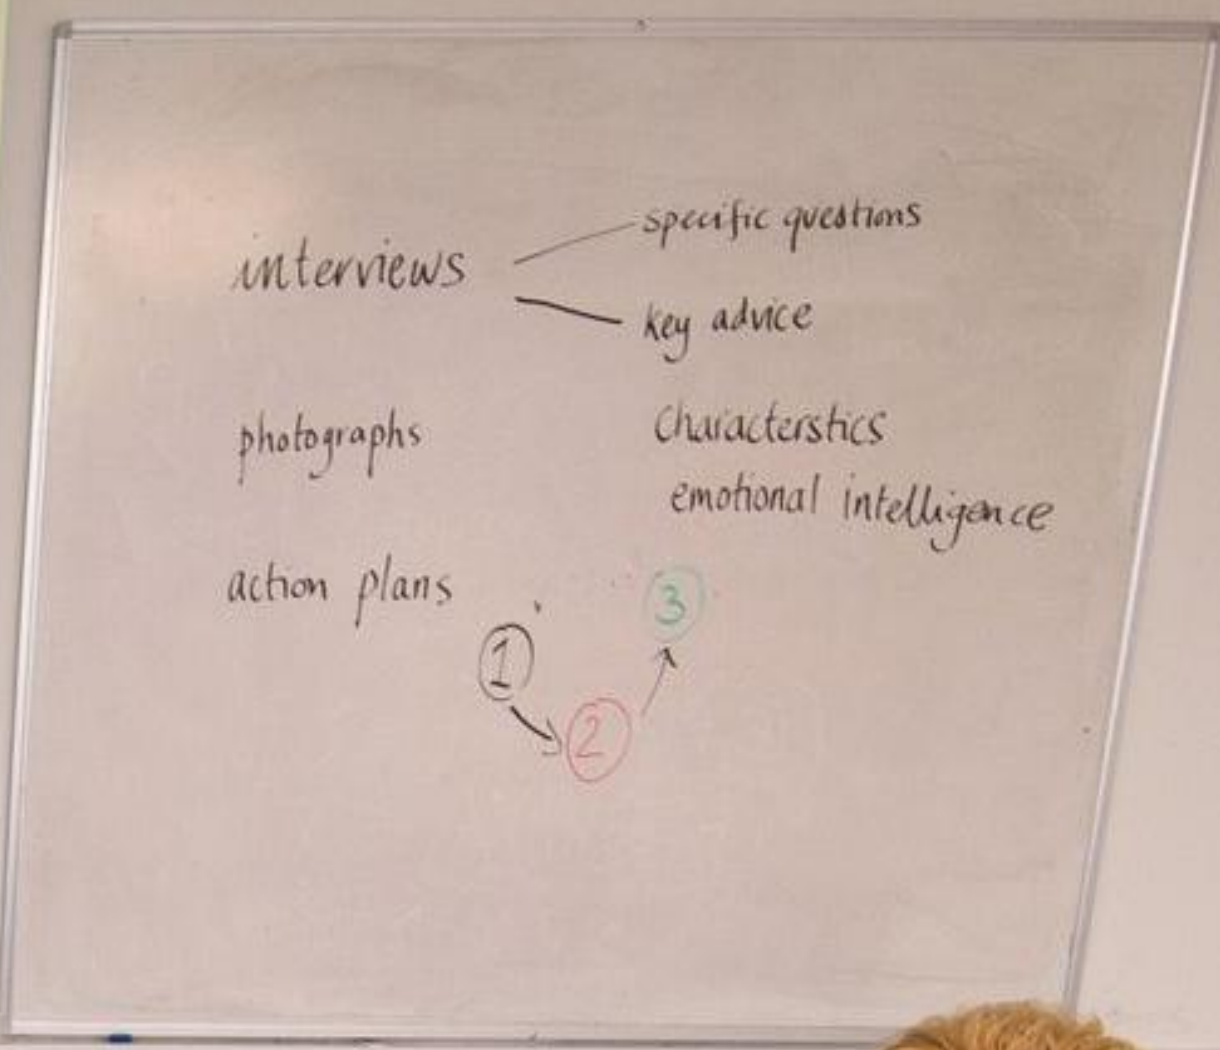 interviews
specific questions
key advice
photographs
Characterstics
emotional intelligence
action plans
1
2
3